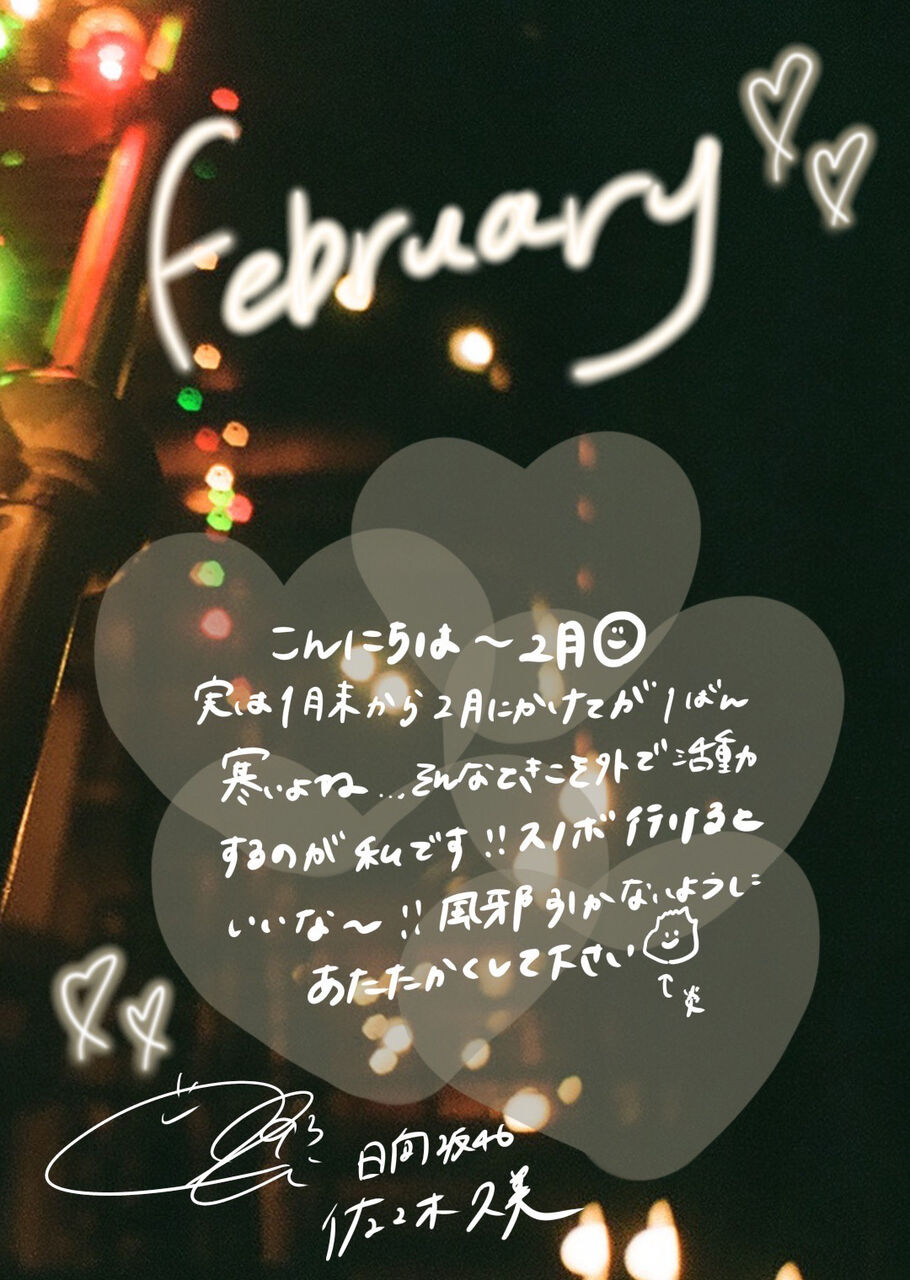 February
こんにちは〜2月
実は1月末から2月にかけてが1ばん
寒いよね...そんなときこそ外で活動
するのが私です!!スノボ行けると
いいな〜!!風邪引かないように
あたたかくして下さい
↑炎
日向坂46
佐々木久美